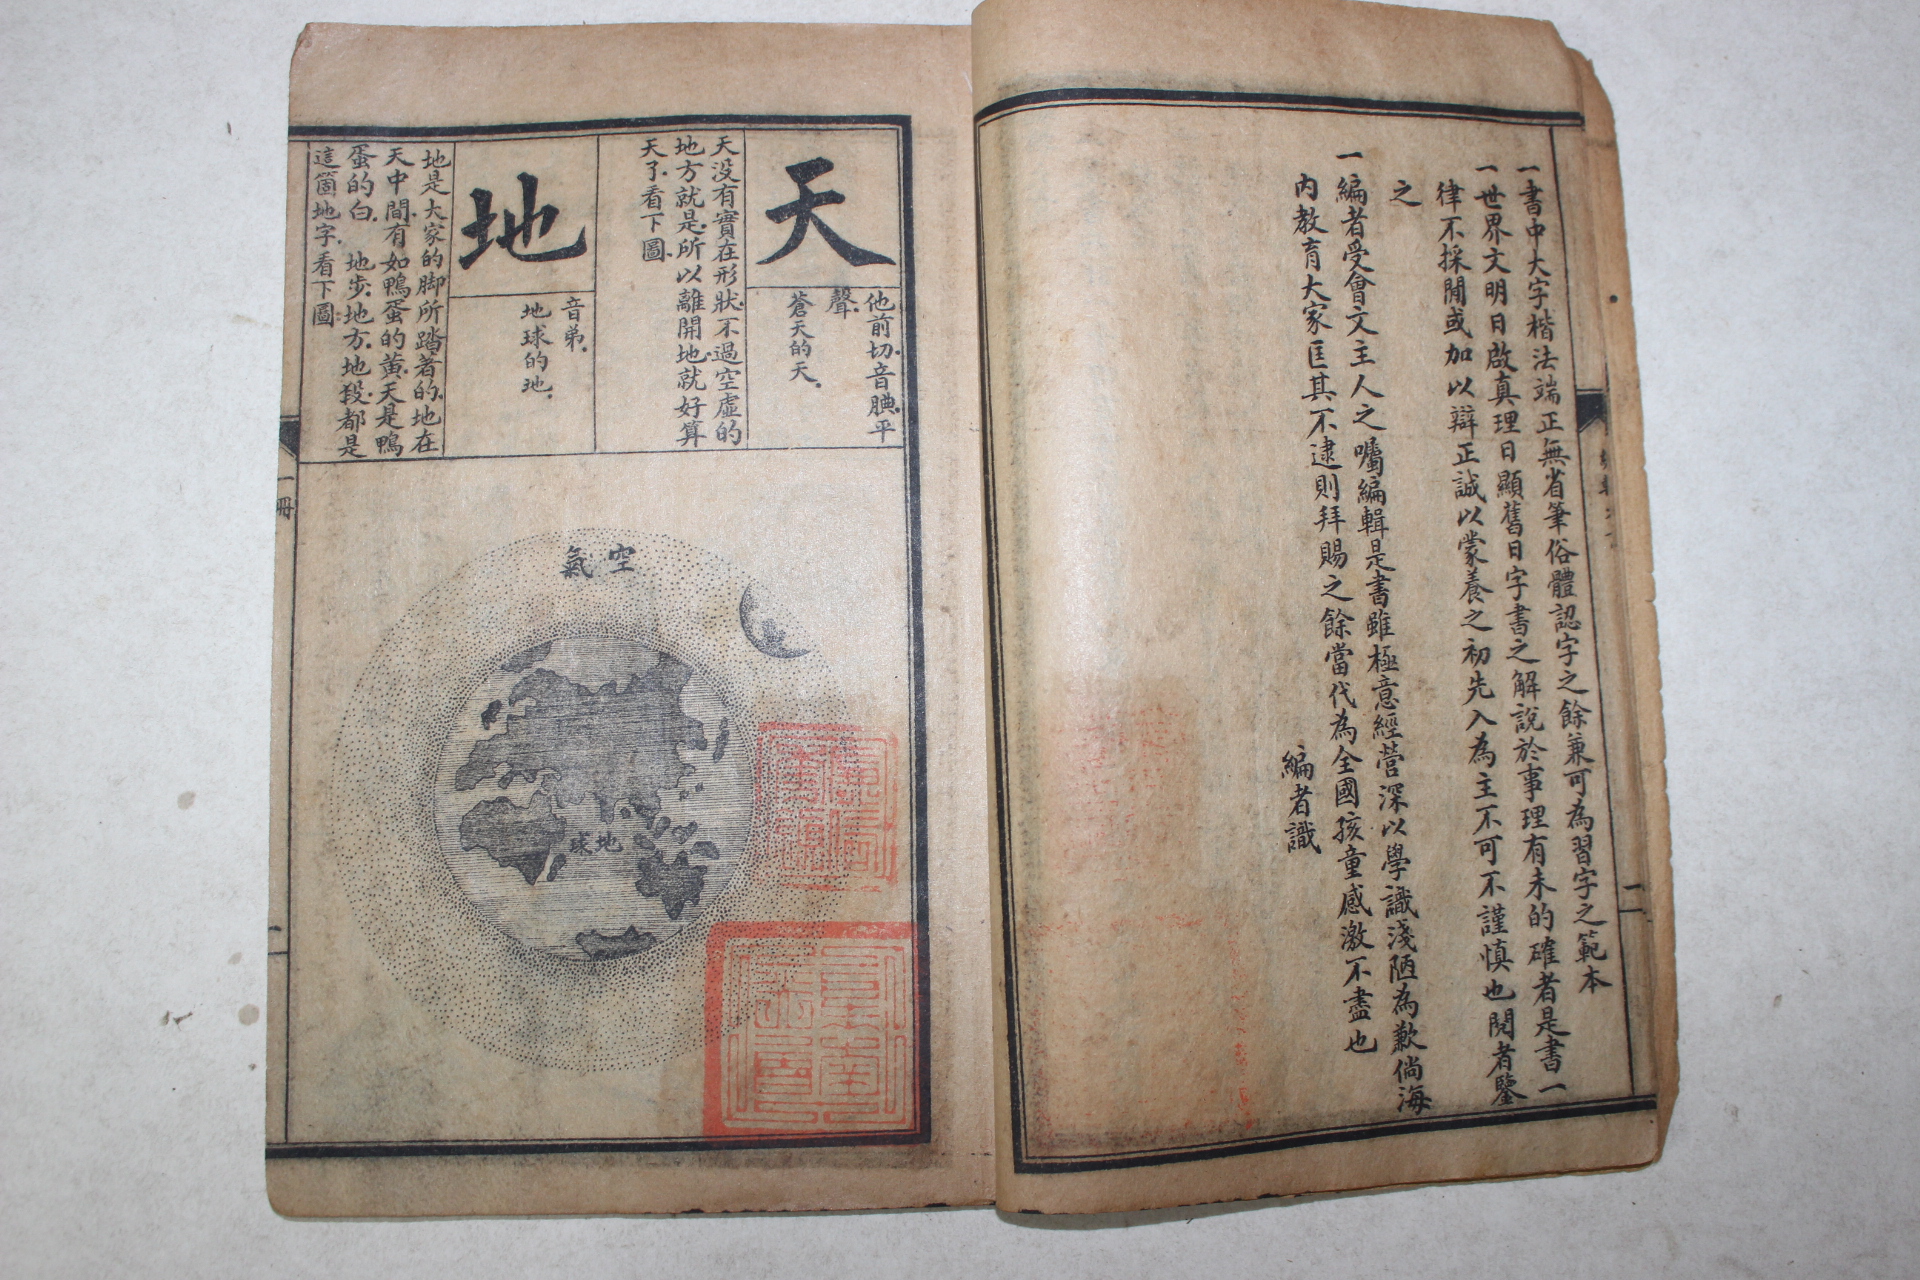 一書中大字楷法端正無省筆俗體認字之餘兼可為習字之範本
一世界文明日啟真理日顯舊日字書之解說於事理有未的確者是書一
律不採間或加以辯正誠以蒙養之初先入為主不可不謹慎也閱者鑒
之
一編者受會文主人之囑編輯是書雖極意經營深以學識淺陋為歉倘海
內教育大家匡其不逮則拜賜之餘當代為全國孩童感激不盡也
編者識
天
他前切音腆平
聲
蒼天的天
天沒有實在形狀不過空虛的
地方就是所以離開地就好算
天了看下圖
地
音弟
地球的地
地是大家的脚所踏著的地在
天中間有如鴨蛋的黃天是鴨
蛋的白 地步地方地段都是
這箇地字看下圖
空氣
地球
一冊
一